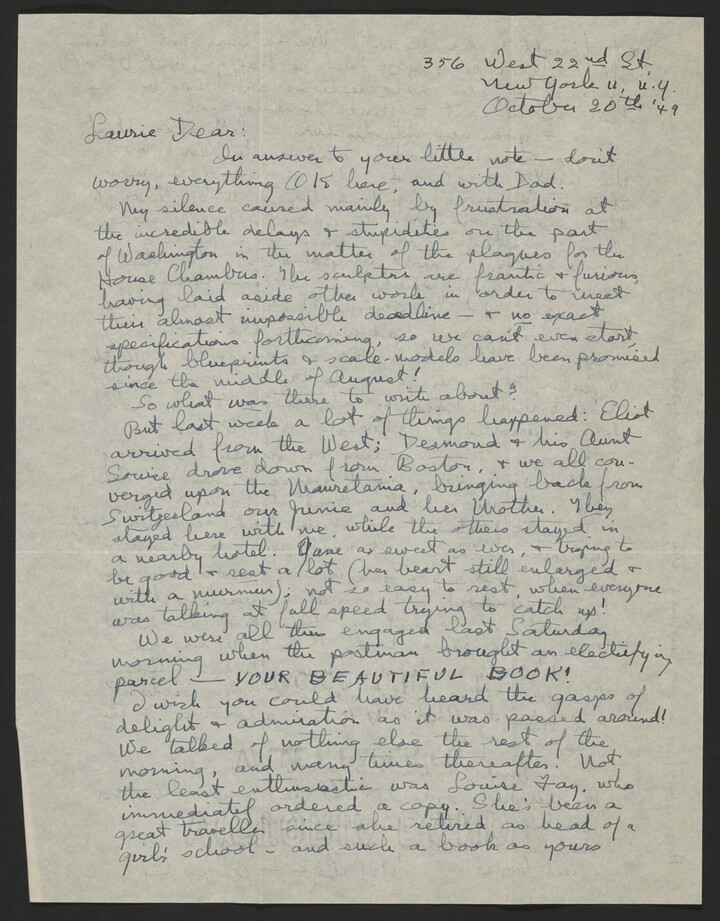 356 West 22nd St.
New York 11, N.Y.
October 20th '49
Laurie Dear:
In answer to your little note — don't
worry, everything OK here, and with Dad.
My silence caused mainly by frustration at
the incredible delays & stupidities on the part
of Washington in the matter of the plaques for the
House Chambers. The sculptors are frantic & furious,
having laid aside other work in order to meet
their almost impossible deadline — & no exact
specifications forthcoming, so we can't even start,
though blueprints & scale-models have been promised
since the middle of August!
So what was there to write about?
But last week a lot of things happened: Eliot
arrived from the West; Desmond & his Aunt
Louise drove down from Boston, & we all con-
verged upon the Mauretania, bringing back from
Switzerland our Junie and her Mother. They
stayed here with me, while the others stayed in
a nearby hotel. June as sweet as ever, & trying to
be good & rest a lot (her heart still enlarged &
with a murmur); not so easy to rest, when everyone
was talking at full speed trying to catch up!
We were all thus engaged last Saturday
morning when the postman brought an electrifying
parcel — YOUR BEAUTIFUL BOOK!
I wish you could have heard the gasps of
delight & admiration as it was passed around!
We talked of nothing else the rest of the
morning, and many times thereafter. Not
the least enthusiastic was Louise Fay, who
immediately ordered a copy. She's been a
great traveller since she retired as head of a
girls' school – and such a book as yours